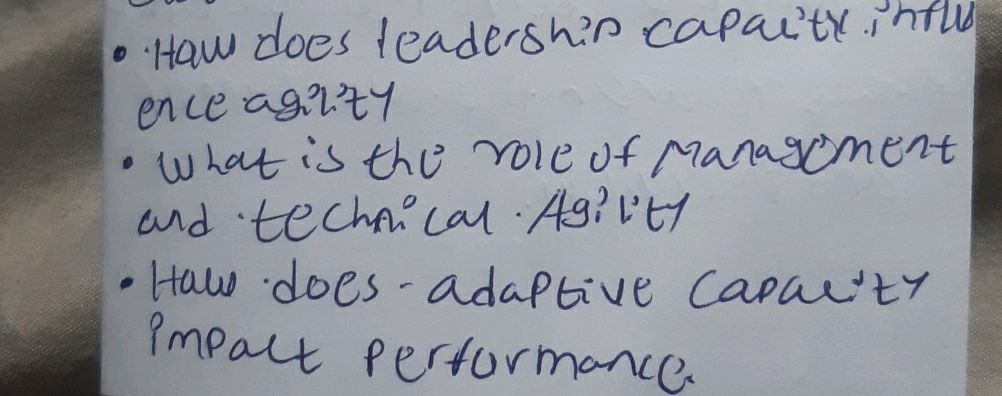 • How does leadership capacity influ
ence agility
• What is the role of Management
and technical Agility
• How does - adaptive capacity
impact performance.